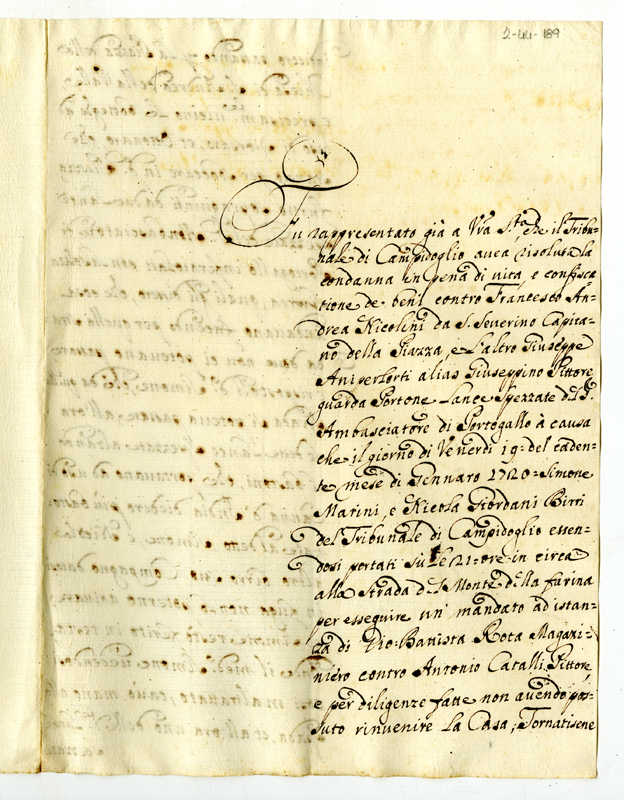 2-44-189
Fu rappresentato già a Vrà S.ta che il Tribu-
nale di Campidoglio avea risoluta la
condanna in pena di vita, e confisca
tione de beni contro Francesco An-
drea Nicolini da S. Severino Capita-
no della Piazza, e l'altro Giuseppe
Aniperforti alias Giuseppino Pittore
guarda Portone Lance Spezzate del S.
Ambasciatore di Portogallo à causa
che il giorno di Venerdi 19: del caden-
te mese di Gennaro 1720= Simone
Marini, e Nicola Giordani Birri
del Tribunale di Campidoglio essen-
dosi portati sù le 21= ore in circa
alla Strada del Monte della farina
per esseguire un' mandato ad istan-
za di Gio: Battista Rota Magazi-
niero contro Antonio Catalli Pittore,
e per diligenze fatte non avendo pos-
suto rinvenire la Casa, Tornatisene